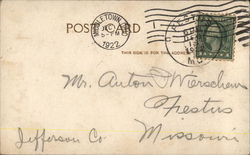 POST CARD
MIDDLETOWN
1922
THIS SIDE IS FOR THE ADDRESS
Mr. Anton Wierschem
Festus
Jefferson Co.
Missouri